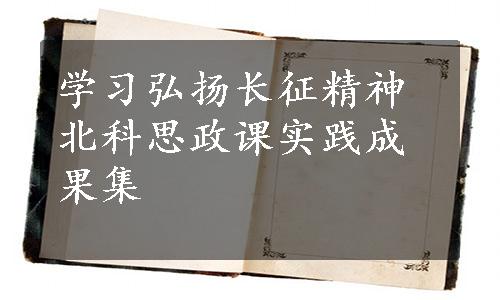 学习弘扬长征精神
北科思政课实践成
果集